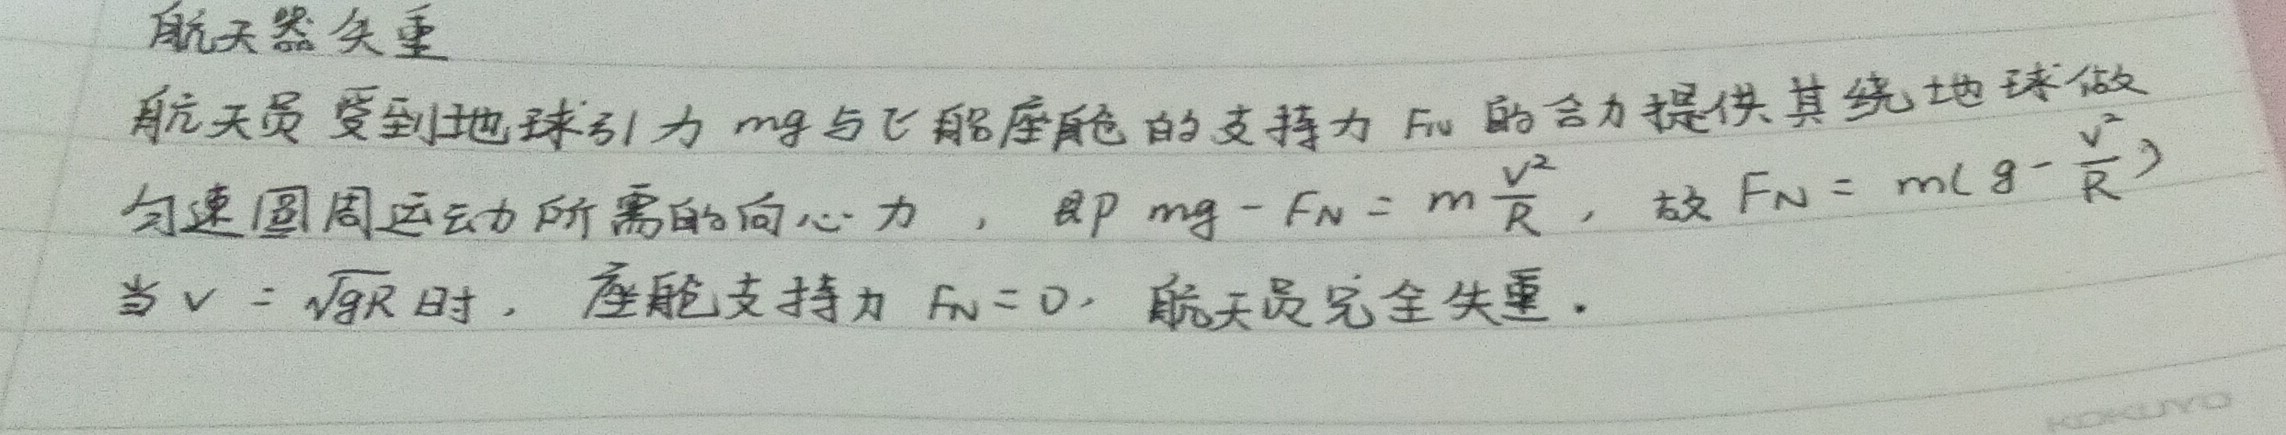 航天器失重
航天员受到地球引力 mg 与飞船座舱的支持力 FN 的合力提供其绕地球做
匀速圆周运动所需的向心力，即 mg - FN = m v²/R，故 FN = m(g - v²/R)
当 v = √gR 时，座舱支持力 FN = 0. 航天员完全失重.
KOKUYO